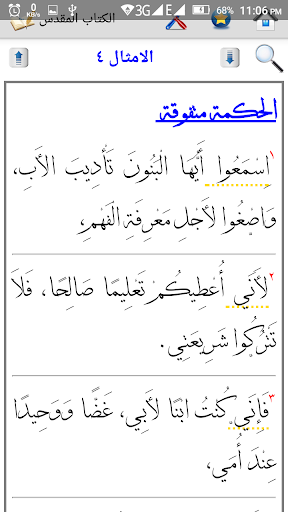 0 KB/s 3G E 68% 11:06 PM
الكتاب المقدس
الامثال ٤
الحكمة متفوقة
١ اِسْمَعُوا أَيُّهَا الْبَنُونَ تَأْدِيبَ الأَبِ،
وَاصْغُوا لأَجْلِ مَعْرِفَةِ الْفَهْمِ،
٢ لأَنِّي أُعْطِيكُمْ تَعْلِيمًا صَالِحًا، فَلاَ
تَتْرُكُوا شَرِيعَتِي.
٣ فَإِنِّي كُنْتُ ابْنًا لأَبِي، غَضًّا وَوَحِيدًا
عِنْدَ أُمِّي،